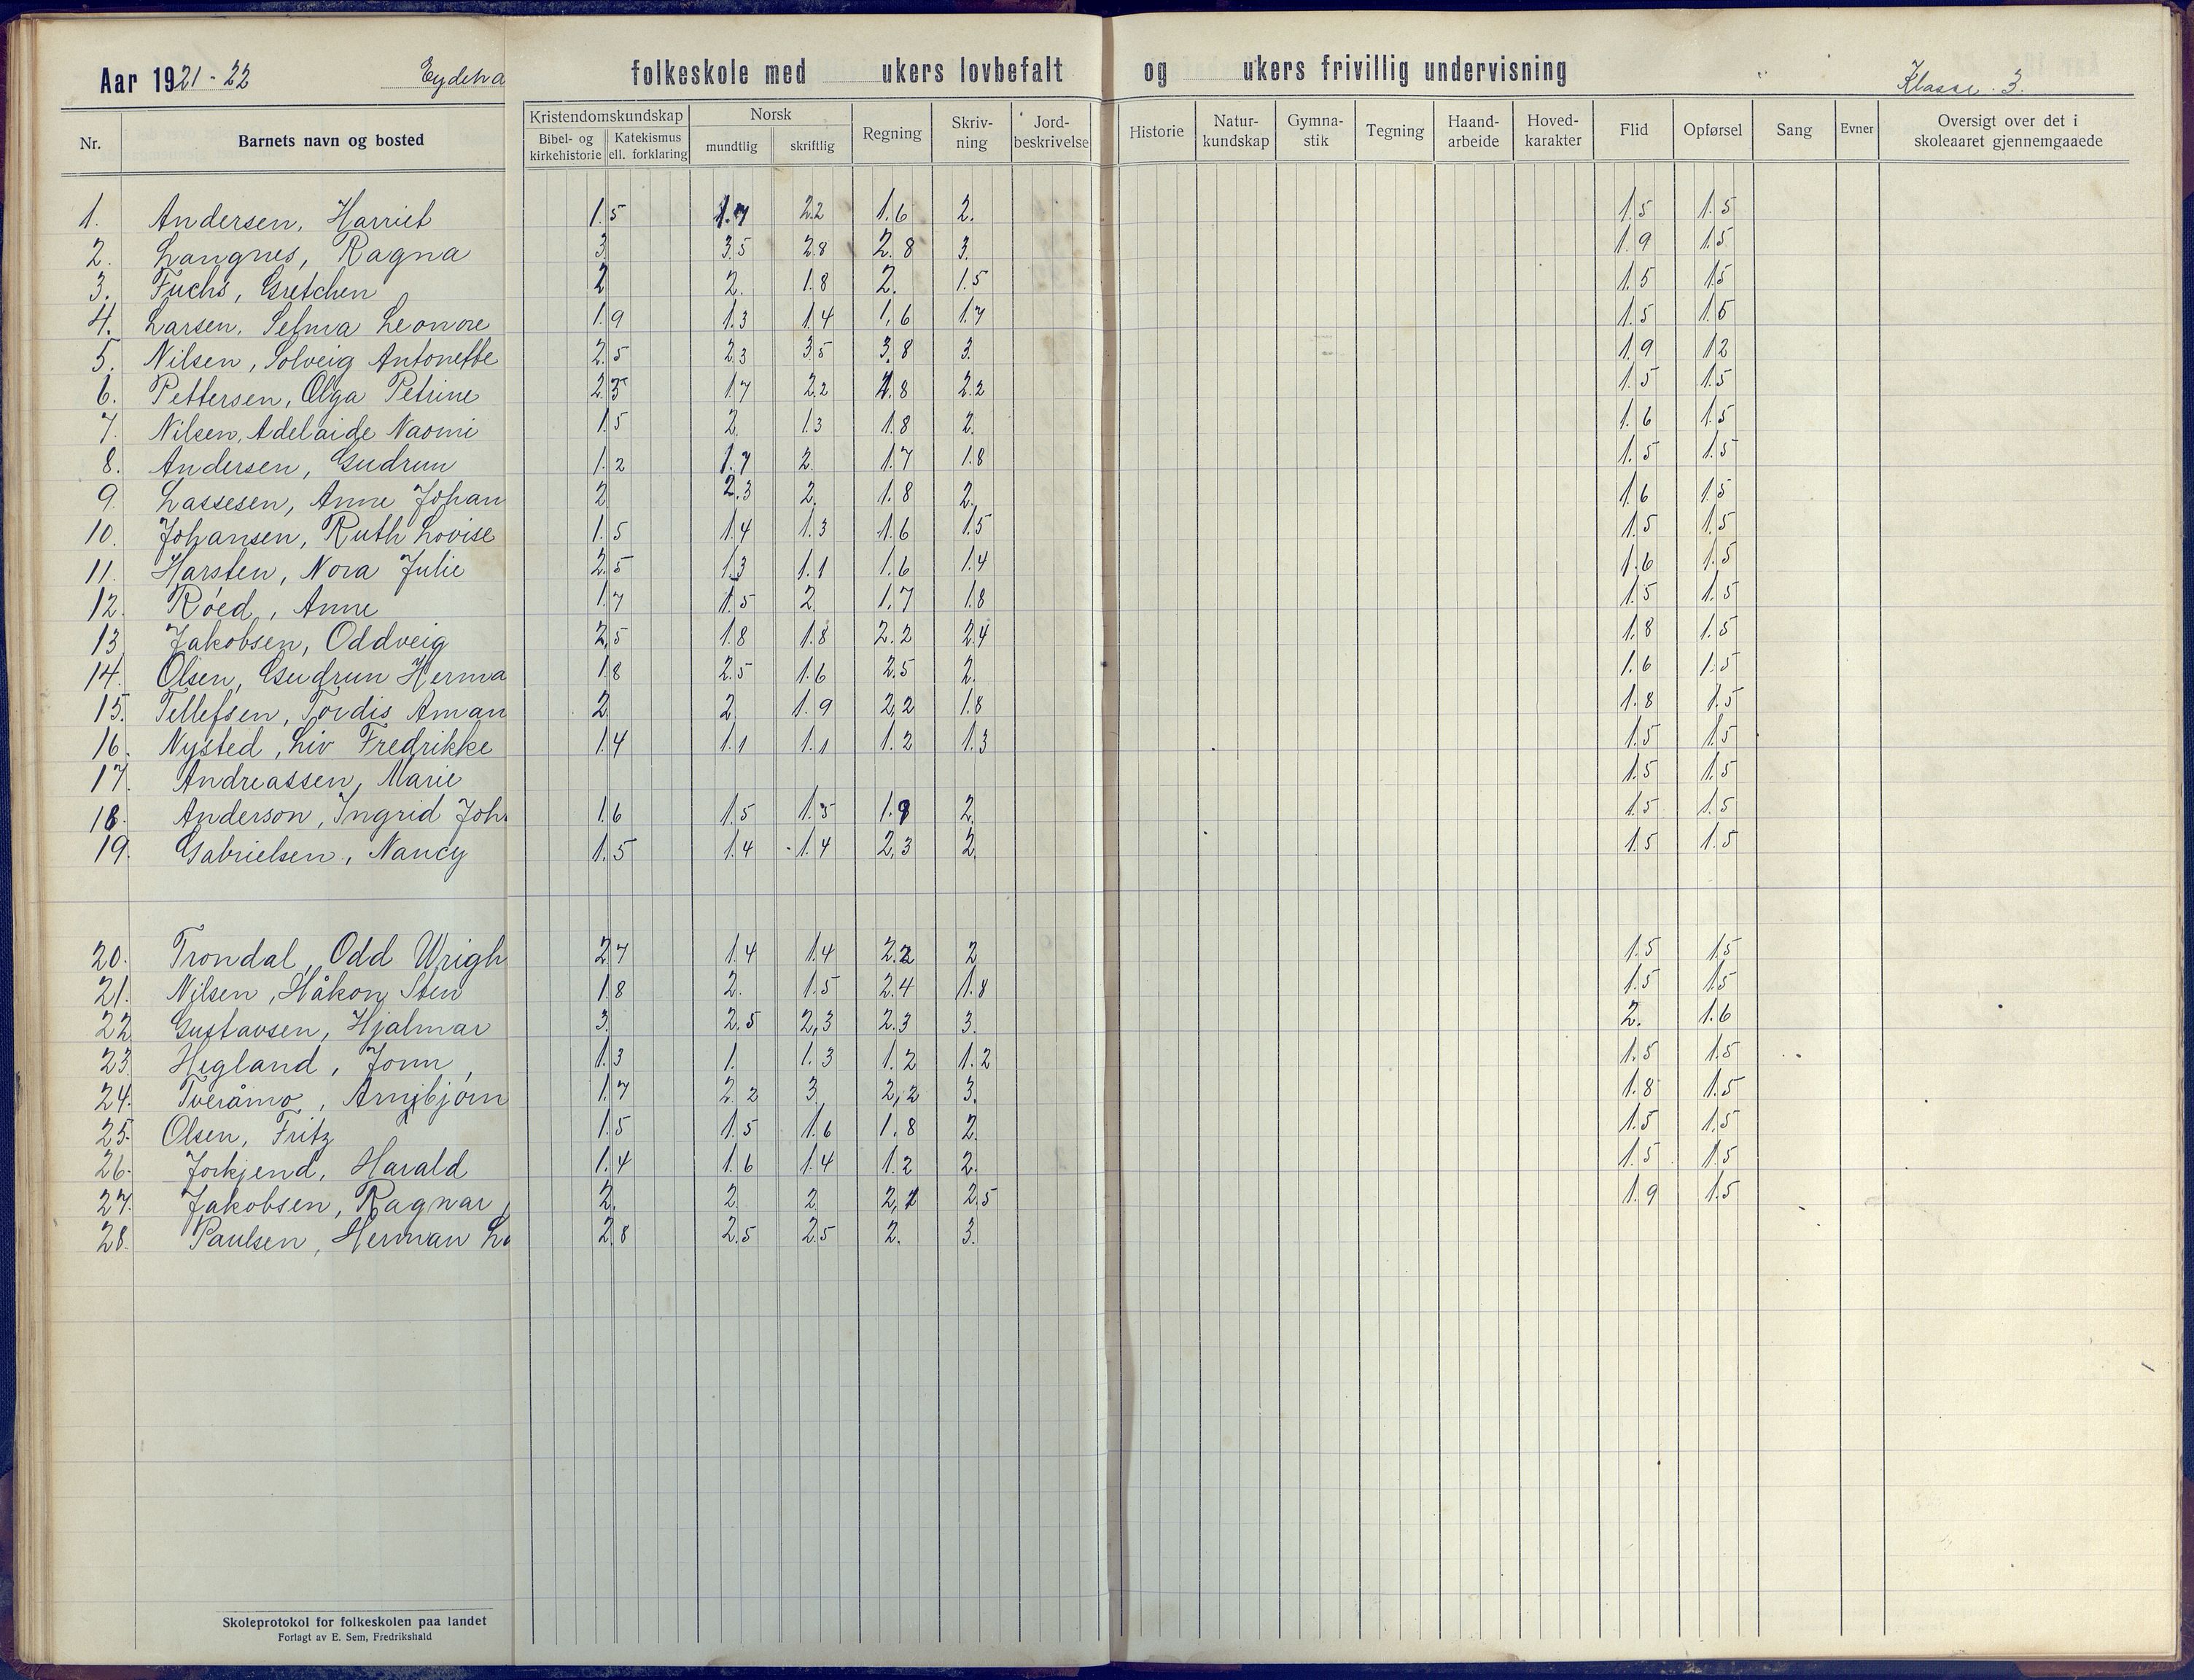 Aar 1921-22 Eydeha folkeskole med ukers lovbefalt og ukers frivillig undervisning Klasse 3.
Nr. Barnets navn og bosted Kristendomskundskap Bibel- og kirkehistorie Katekismus ell. forklaring Norsk mundtlig skriftlig Regning Skriv-ning Jord-beskrivelse Historie Natur-kundskap Gymna-stik Tegning Haand-arbeide Hoved-karakter Flid Opførsel Sang Evner Oversigt over det i skoleaaret gjennemgaaede
1. Andersen, Harriet 1.5 1.7 2.2 1.6 2. 1.5 1.5
2. Langnes, Ragna 3 3.5 2.8 2.8 3. 1.9 1.5
3. Fuchs, Gretchen 2 2. 1.8 2. 1.5 1.5 1.5
4. Larsen, Selma Leonore 1.9 1.3 1.4 1.6 1.7 1.5 1.5
5. Nilsen, Solveig Antonette 2.5 2.3 3.5 3.8 3. 1.9 1.2
6. Pettersen, Olga Petrine 2.3 1.7 2.2 1.8 2.2 1.5 1.5
7. Nilsen, Adelaide Naomi 1.5 2. 1.3 1.8 2. 1.6 1.5
8. Andersen, Gudrun 1.2 1.7 2. 1.7 1.8 1.5 1.5
9. Lassesen, Anne Johan 2 2.3 2. 1.8 2. 1.6 1.5
10. Johansen, Ruth Lovise 1.5 1.4 1.3 1.6 1.5 1.5 1.5
11. Harsten, Nora Julie 2.5 1.3 1.1 1.6 1.4 1.6 1.5
12. Røed, Anne 1.7 1.5 2. 1.7 1.8 1.5 1.5
13. Jakobsen, Oddveig 2.5 1.8 1.8 2.2 2.4 1.8 1.5
14. Olsen, Gudrun Herma 1.8 2.5 1.6 2.5 2. 1.6 1.5
15. Tellefsen, Tordis Aman 2 2 1.9 2.2 1.8 1.8 1.5
16. Nysted, Liv Fredrikke 1.4 1.1 1.1 1.2 1.3 1.5 1.5
17. Andreassen, Marie 1.5 1.5
18. Anderson, Ingrid Joh 1.6 1.5 1.5 1.9 2. 1.5 1.5
19. Gabrielsen, Nancy 1.5 1.4 1.4 2.3 2. 1.5 1.5
20. Trondal, Odd Wrigh 2.7 1.4 1.4 2.2 2 1.5 1.5
21. Nilsen, Håkon Sten 1.8 2. 1.5 2.4 1.8 1.5 1.5
22. Gustavsen, Hjalmar 3. 2.5 2.3 2.3 3. 2. 1.6
23. Hegland, Jonn, 1.3 1. 1.3 1.2 1.2 1.5 1.5
24. Tveråmo, Arnbjørn 1.7 2.2 3. 2.2 3. 1.8 1.5
25. Olsen, Fritz 1.5 1.5 1.6 1.8 2. 1.5 1.5
26. Jorkjend, Harald 1.4 1.6 1.4 1.2 2. 1.5 1.5
27. Jakobsen, Ragnar 2. 2. 2 2.1 2.5 1.9 1.5
28. Paulsen, Herman 2.8 2.5 2.5 2. 3.
Skoleprotokol for folkeskolen paa landet
Forlagt av E. Sem, Fredrikshald